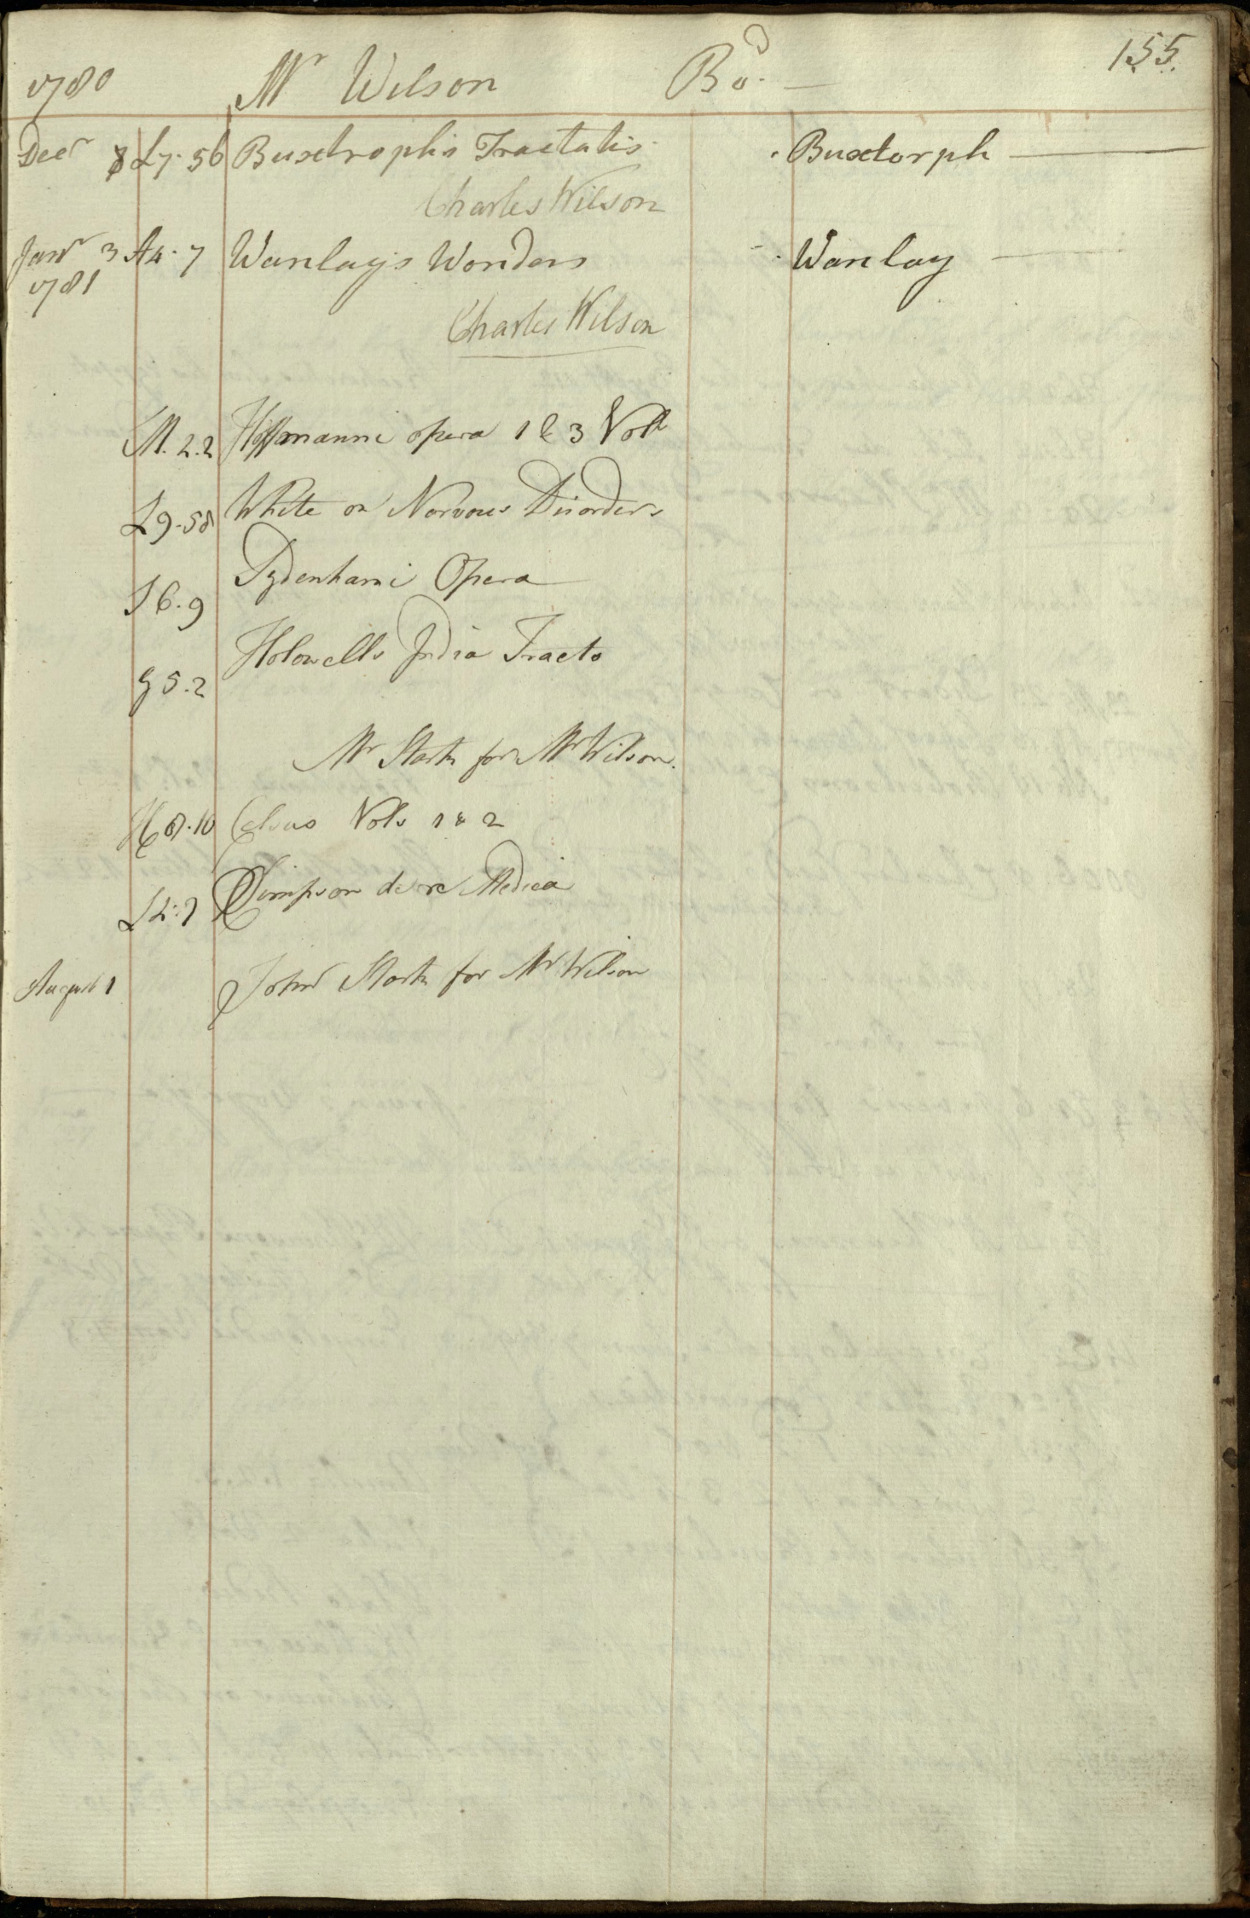 155.
1780 Mr Wilson Bo.d —
Decr 8 L7.56 Buxtrophis Tractatis. Buxtorph —
Charles Wilson
Janr 3 A4.7 Wanlay's Wonders Wanlay —
1781
Charles Wilson
M.2.2 Hoffmanni opera 1 & 3 Voll
L9.58 White on Nervous Disorders
I6.9 Sydenhami Opera
G5.2 Holowells India Tracts
Mr Stark for Mr Wilson.
H8.10 Celsus Vols 1 & 2
L4:7 Simpson de re Medica
August 1 John Stark for Mr Wilson